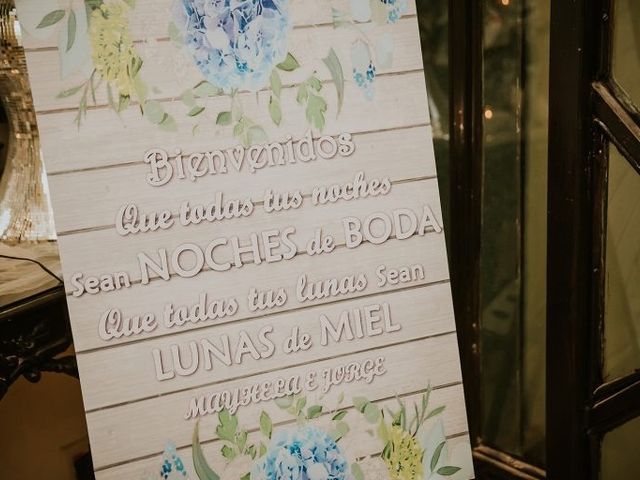 Bienvenidos
Que todas tus noches
Sean NOCHES de BODA
Que todas tus lunas Sean
LUNAS de MIEL
MAYHELA E JORGE